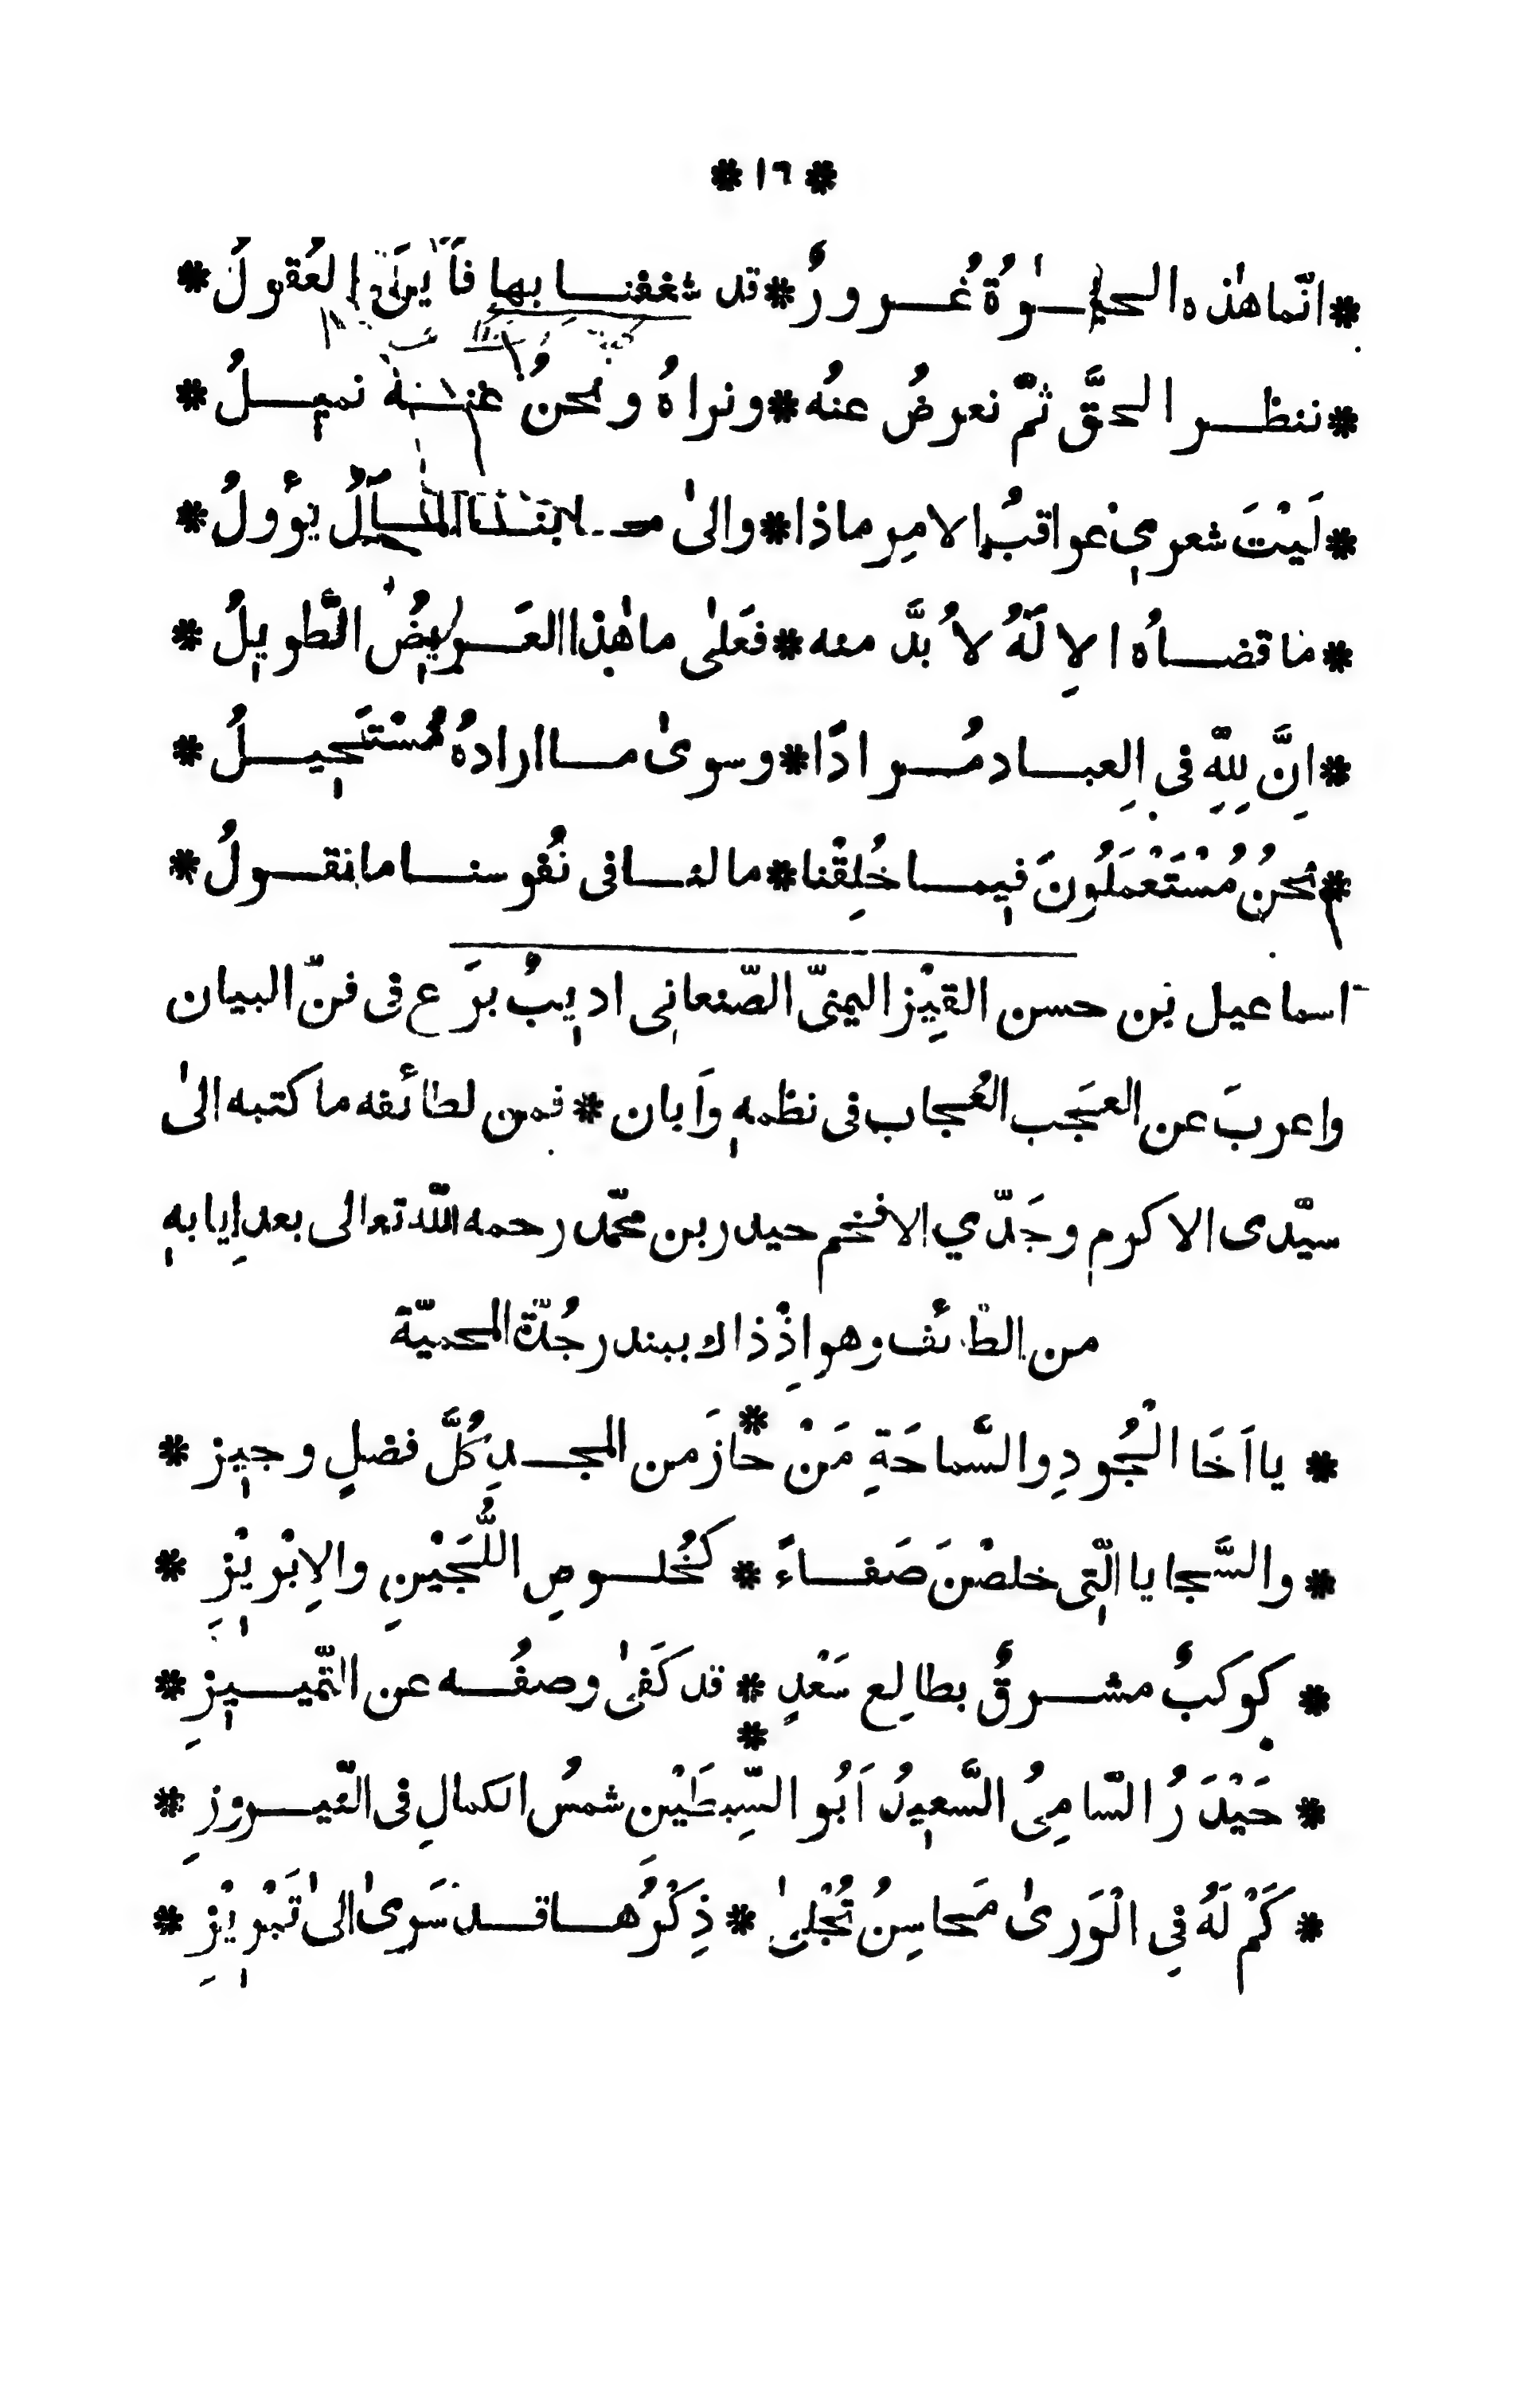 * ١٦ *
* انّما هٰذه الحيٰوةُ غُرورٌ * قد شغفنا بها فاَينَ العُقولُ *
* ننظر الحقَّ ثمّ نعرضُ عنهُ * ونراهُ ونحنُ عنه نميلُ *
* لَيْتَ شعري عواقبُ الامرِ ماذا * والىٰ المآلُ يؤولُ *
* ما قضاُه الاِلَهُ لاُ بدَّ منه * فعَلىٰ ما هٰذا العَريضُ الطّويلُ *
* اِنَّ لِلّهِ فى العِباد مُرادًا * وسوىٰ ما ارادهُ مُسْتَحيلُ *
* نحنُ مُسْتَعْمَلُونَ فيما خُلِقْنا * ما لنا فى نُفوسنا ما نقولُ *
اسماعيل بن حسن القيِز اليمنىّ الصّنعانى اديبُ برَع فى فنّ البيان
واعربَ عن العَجَب العُجاب فى نظمهٖ واَبان * فمن لطائفه ما كتبه الىٰ
سيّدى الاكرم وجَدّي الافخم حيدر بن محمّد رحمه اللّه تعالى بعد اِيابهٖ
من الطّائف وهو اِذْ ذاك ببندر جُدّة المحميّة
* يا اَخَا الْجُودِ والسَّماحَةِ مَنْ * حازَ من المجدِ كُلَّ فضلٍ وجيز *
* والسَّجايا الّتى خلصْنَ صَفاءً * كخُلوصِ اللُّجَيْنِ والاِبْرِيْزِ *
* كوكبٌ مشرقٌ بطالِع سَعْدٍ * قد كَفىٰ وصفُه عن التّمييزِ *
* حَيْدَرُ السّامِىُ السَّعيدُ اَبُو السِّبطَيْنِ * شمسُ الكمالِ فى النّيروزِ *
* كَمْ لَهُ فِى الْوَرىٰ مَحاسِنُ تُجْلىٰ * ذِكْرُها قد سَرىٰ الىٰ تَبْرِيْزِ *